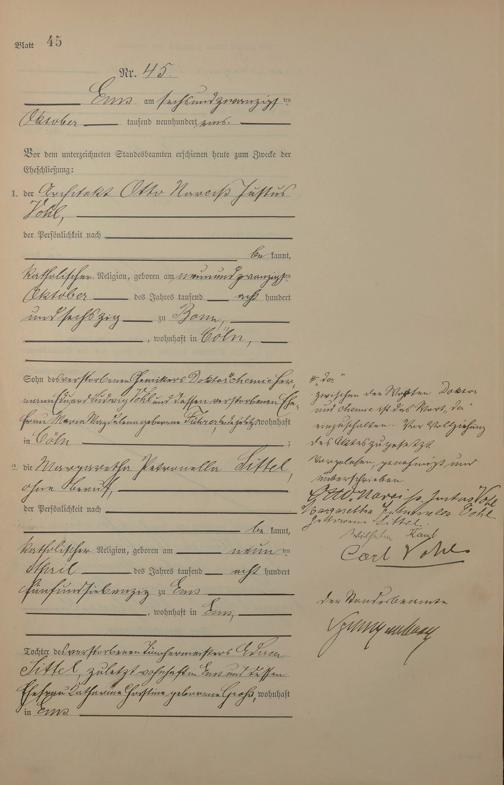 Blatt 45
Nr. 45.
Ems am sechsundzwanzigsten
Oktober tausend neunhundert eins.
Vor dem unterzeichneten Standesbeamten erschienen heute zum Zwecke der
Eheschließung:
1. der Architekt Otto Narciß Justus
Vohl,
der Persönlichkeit nach
be kannt,
katholischer Religion, geboren am neunundzwanzigsten
Oktober des Jahres tausend acht hundert
undsechszig zu Bonn,
, wohnhaft in Cöln,
Sohn des verstorbenen Chemikers Doktor chemie Her-
mann Eduard Ludwig Vohl und dessen verstorbenen Ehe-
frau Maria Magdalena geborene zuletzt wohnhaft
in Cöln ;
2. die Margaretha Petronella Sittel,
ohne Beruf,
der Persönlichkeit nach
be kannt,
katholischer Religion, geboren am neun ten
April des Jahres tausend acht hundert
fünfundsiebenzig zu Ems
, wohnhaft in Ems,
Tochter des verstorbenen
Sittel, zuletzt wohnhaft in Ems und dessen
Ehefrau Catharina Christine geborene Groß, wohnhaft
in Ems
zwischen den Worten Doktor
und chemie ist das Wort
einzuschalten. Vor Vollziehung
des Aktes zugesetzt
Vorgelesen, genehmigt und
unterschrieben
Otto Narciss Justus Vohl
Margaretha Petronella Vohl
geborene Sittel.
Wilhelm
Carl Vohl
Der Standesbeamte